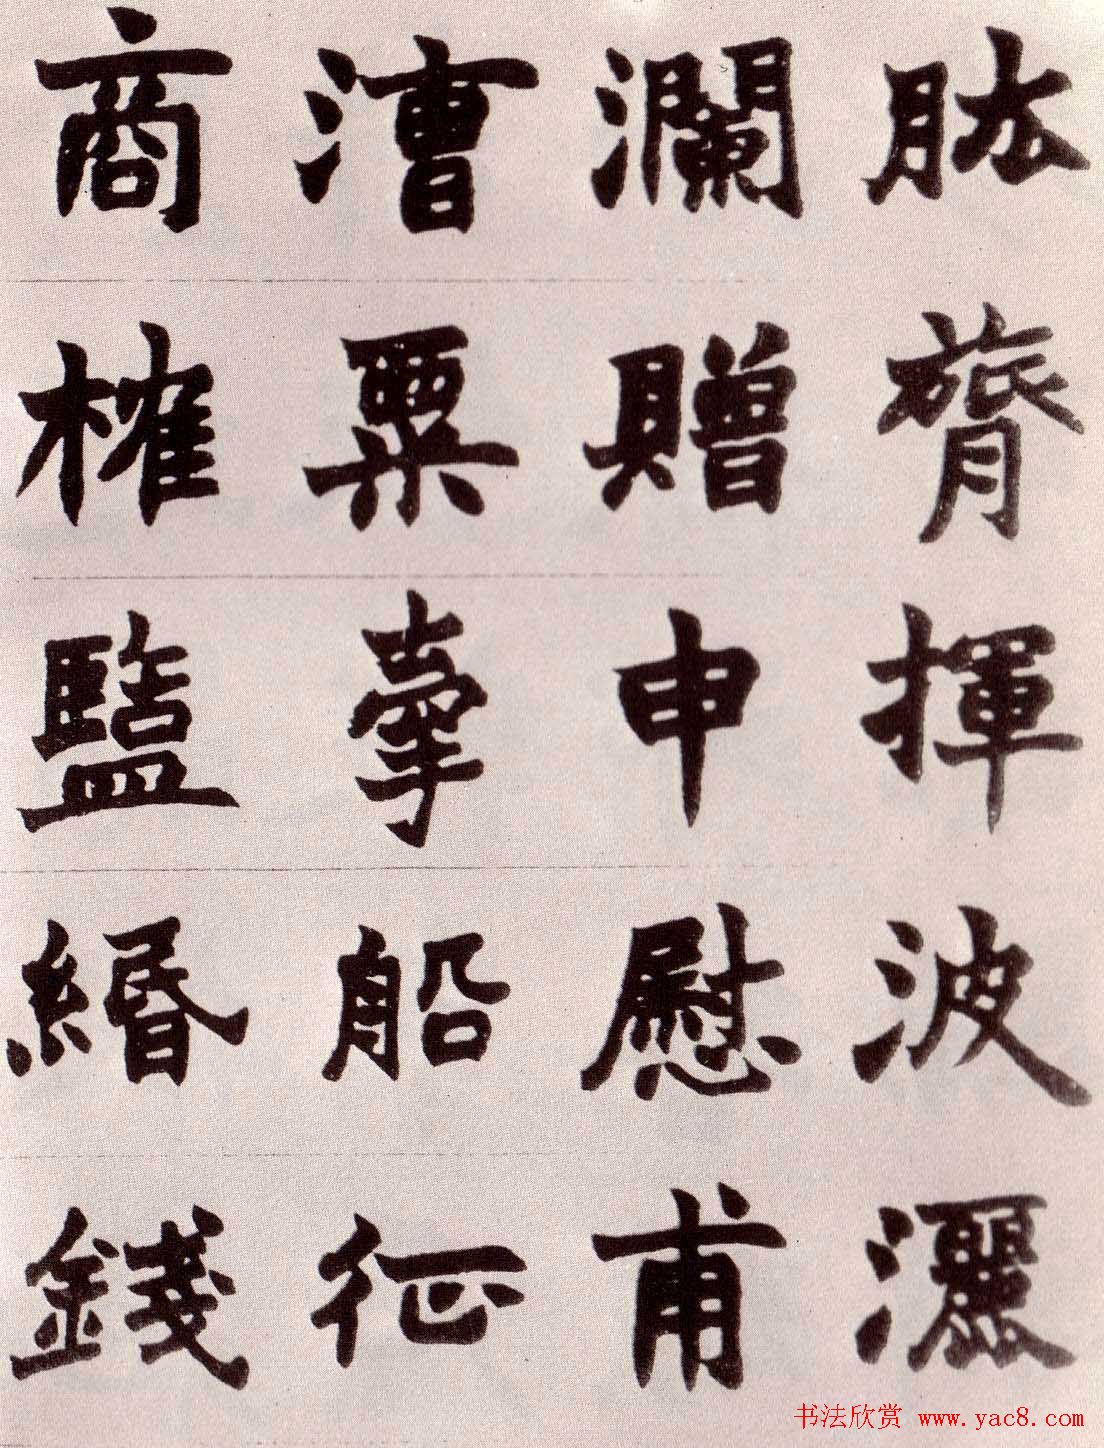 肱膂揮波灑
瀾贈申慰甫
漕粟牽船征
商榷鹽緡錢
书法欣赏 www.yac8.com